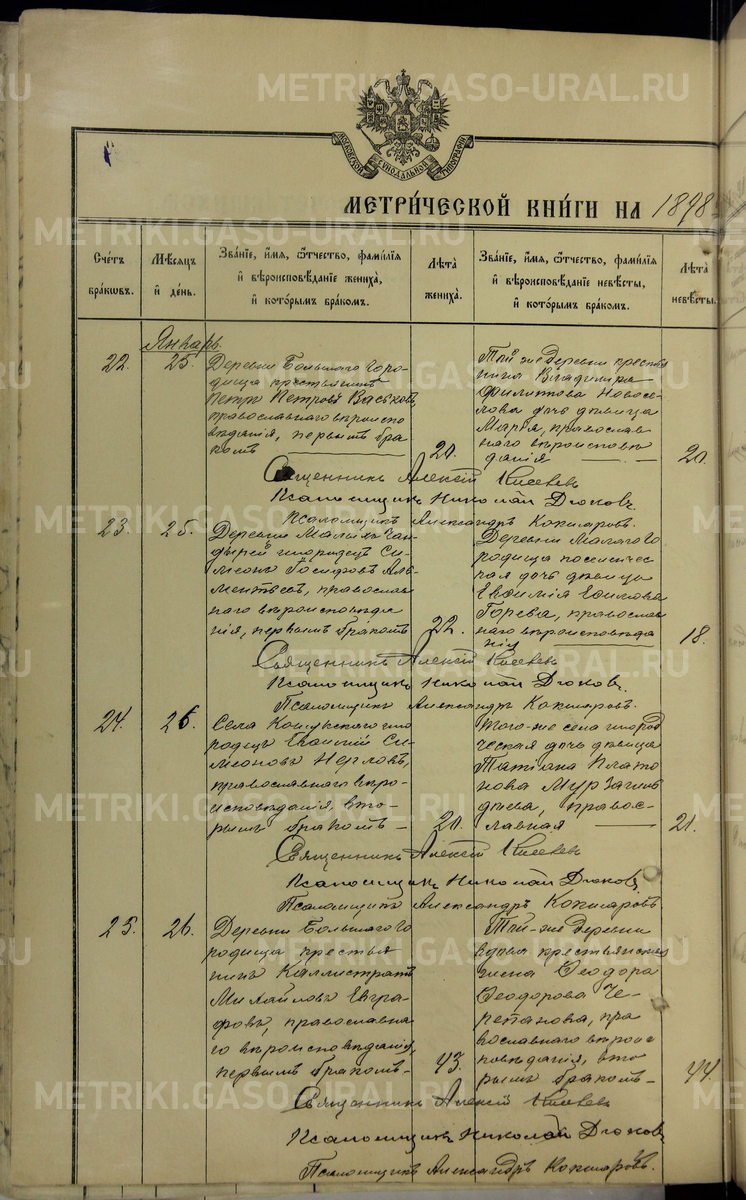 METRIKI.GASO-URAL.RU
МОСКОВСКОЙ СѴНОДАЛЬНОЙ ТИПОГРАФІИ
МЕТРИ́ЧЕСКОЙ КНИ́ГИ НА 1898
Сче́тъ бра́кѡвъ.
Мѣ́сяцъ и҆ де́нь.
Зва́нїе, и҆́мя, ѻ҆́тчество, фами́лїя и҆ вѣроисповѣ́данїе жениха̀, и҆ кото́рымъ бра́комъ.
Лѣ́та жениха̀.
Зва́нїе, и҆́мя, ѻ҆́тчество, фами́лїя и҆ вѣроисповѣ́данїе невѣ́сты, и҆ кото́рымъ бра́комъ.
Лѣ́та невѣ́сты.
Январь.
22.
25.
Деревни Большаго Горо-
дища крестьянинъ
Петръ Петровъ Васьковъ,
православнаго вѣроиспо
вѣданія, первымъ бра
комъ
20.
Той-же деревни крестья
нина Владимира
Филиппова Новосе-
лова дочь дѣвица
Марія, православ
наго вѣроисповѣ
данія
20.
Священникъ Алексій
Псаломщикъ Николай Дюковъ.
Псаломщикъ Александръ Кокшаровъ.
23.
25.
Деревни Малыхъ
инородецъ Си-
меонъ Іосифовъ
православ
наго вѣроисповѣда
нія, первымъ бракомъ
22.
Деревни Малаго Го
родища
кая дочь дѣвица
Евфимія Ефимова
Горева, православ
наго вѣроисповѣда
нія
18.
Священникъ Алексій
Псаломщикъ Николай Дюковъ.
Псаломщикъ Александръ Кокшаровъ.
24.
26.
Села ино
родецъ Евфимій Си-
меоновъ
православнаго вѣро-
исповѣданія, вто-
рымъ бракомъ
20.
Того-же села инород
ческая дочь дѣвица
Татіана Плато
нова Мурзагиль
дѣева, правос-
лавная
21.
Священникъ Алексій
Псаломщикъ Николай Дюковъ
Псаломщикъ Александръ Кокшаровъ
25.
26.
Деревни Большаго Го
родища крестья
нинъ Каллистратъ
Михайловъ Евгра-
фовъ, православна
го вѣроисповѣданія,
первымъ бракомъ
43.
Той-же деревни
вдова крестьянская
жена Феодора
Феодорова Че-
репанова, пра
вославнаго вѣроис
повѣданія, вто
рымъ бракомъ
44.
Священникъ Алексій
Псаломщикъ Николай Дюковъ
Псаломщикъ Александръ Кокшаровъ.